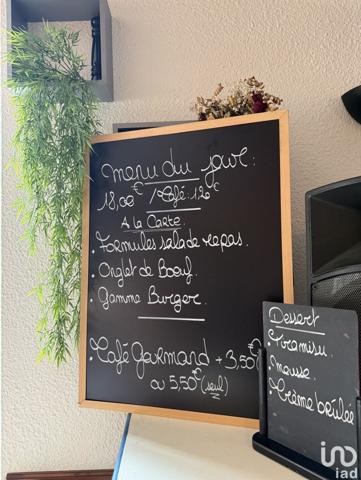 menu du jour:
18,00€ / Café 1,20€
A la Carte.
• Formules salade repas.
• Onglet de Boeuf.
• Gamme Burger.
• Café Gourmand + 3,50€(
ou 5,50€ (seul)
Dessert
• Tiramisu.
• Mousse.
• Crème brûlée
iad